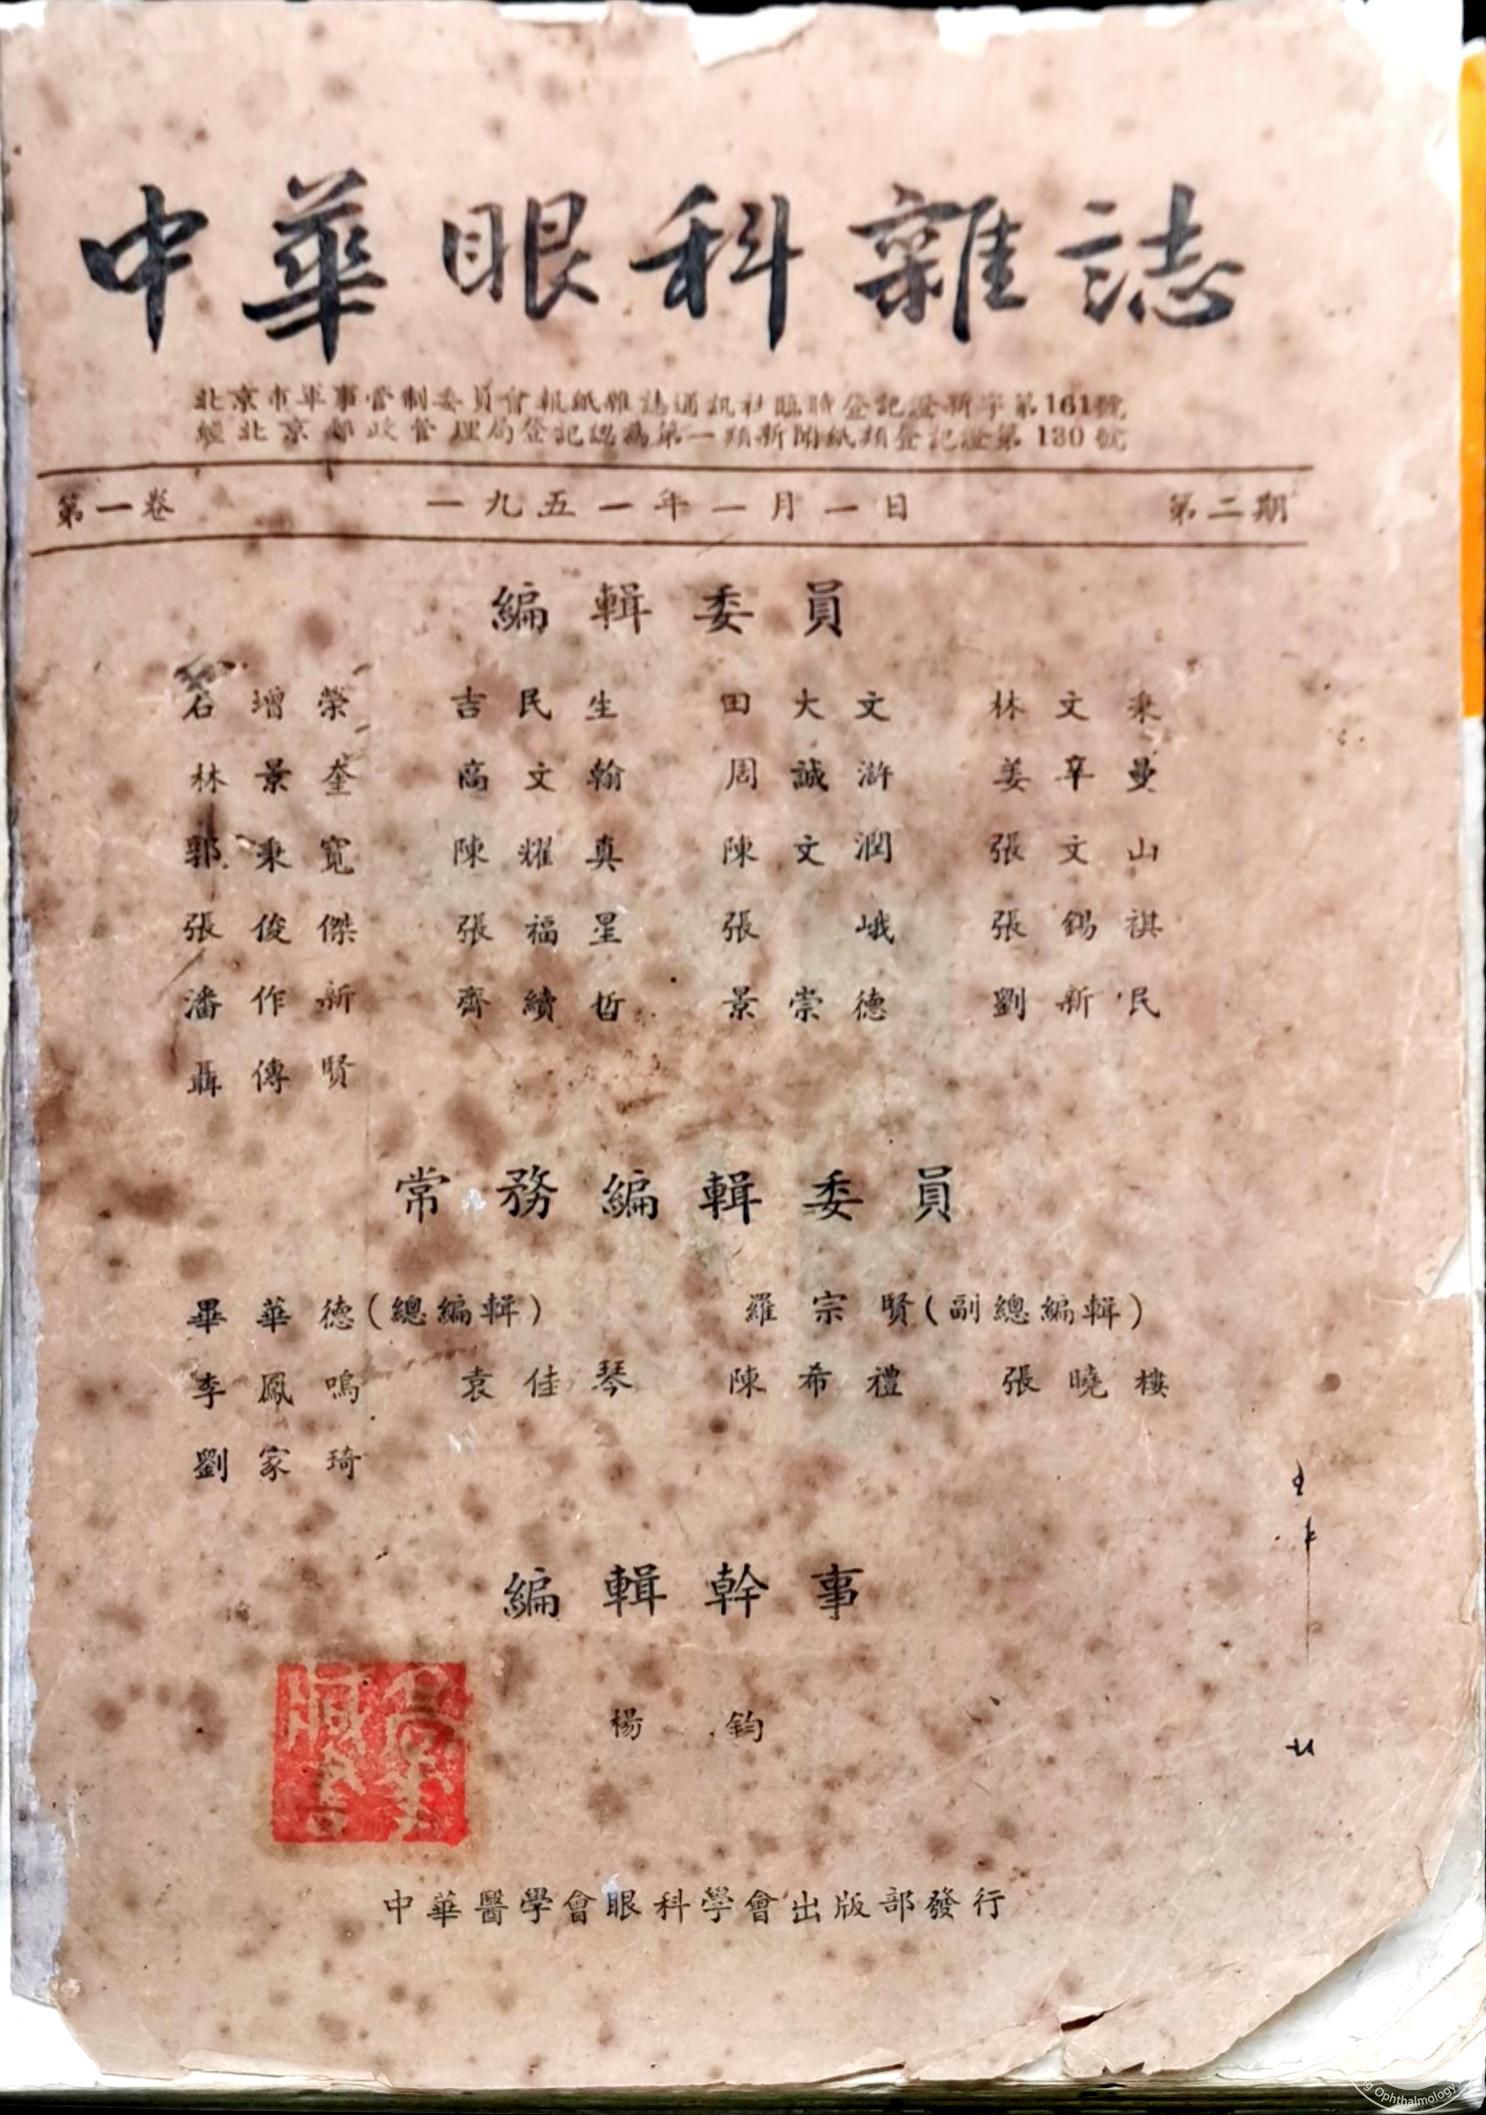 中華眼科雜誌
北京市軍事管制委員會報紙雜誌通訊社臨時登記證新字第161號
經北京郵政管理局登記認為第一類新聞紙類登記證第130號
第一卷 一九五一年一月一日 第二期
編輯委員
石增榮 吉民生 田大文 林文秉
林景奎 高文翰 周誠滸 姜辛曼
郭秉寬 陳耀真 陳文潤 張文山
張俊傑 張福星 張峨 張錫祺
潘作新 齊續哲 景崇德 劉新民
聶傳賢
常務編輯委員
畢華德(總編輯) 羅宗賢(副總編輯)
李鳳鳴 袁佳琴 陳希禮 張曉樓
劉家琦
編輯幹事
楊鈞
中華醫學會眼科學會出版部發行
Ophthalmology